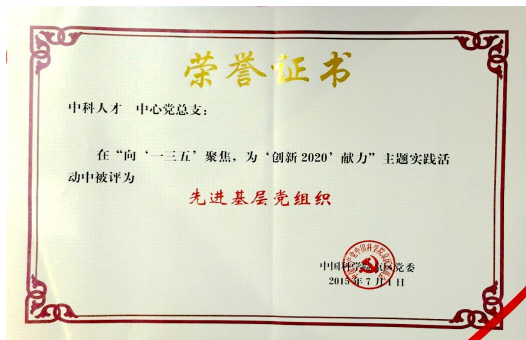 荣誉证书
中科人才 中心党总支：
在“向‘一三五’聚焦，为‘创新2020’献力”主题实践活
动中被评为
先进基层党组织
中国科学院京区党委
2015年7月1日